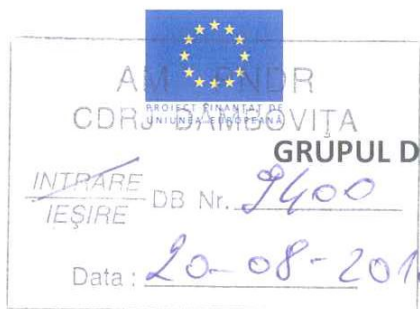 AM PNDR
PROIECT FINANȚAT DE
UNIUNEA EUROPEANĂ
CDRJ DAMBOVIȚA
GRUPUL D
INTRARE
IEȘIRE DB Nr. 9400
Data: 20-08-201